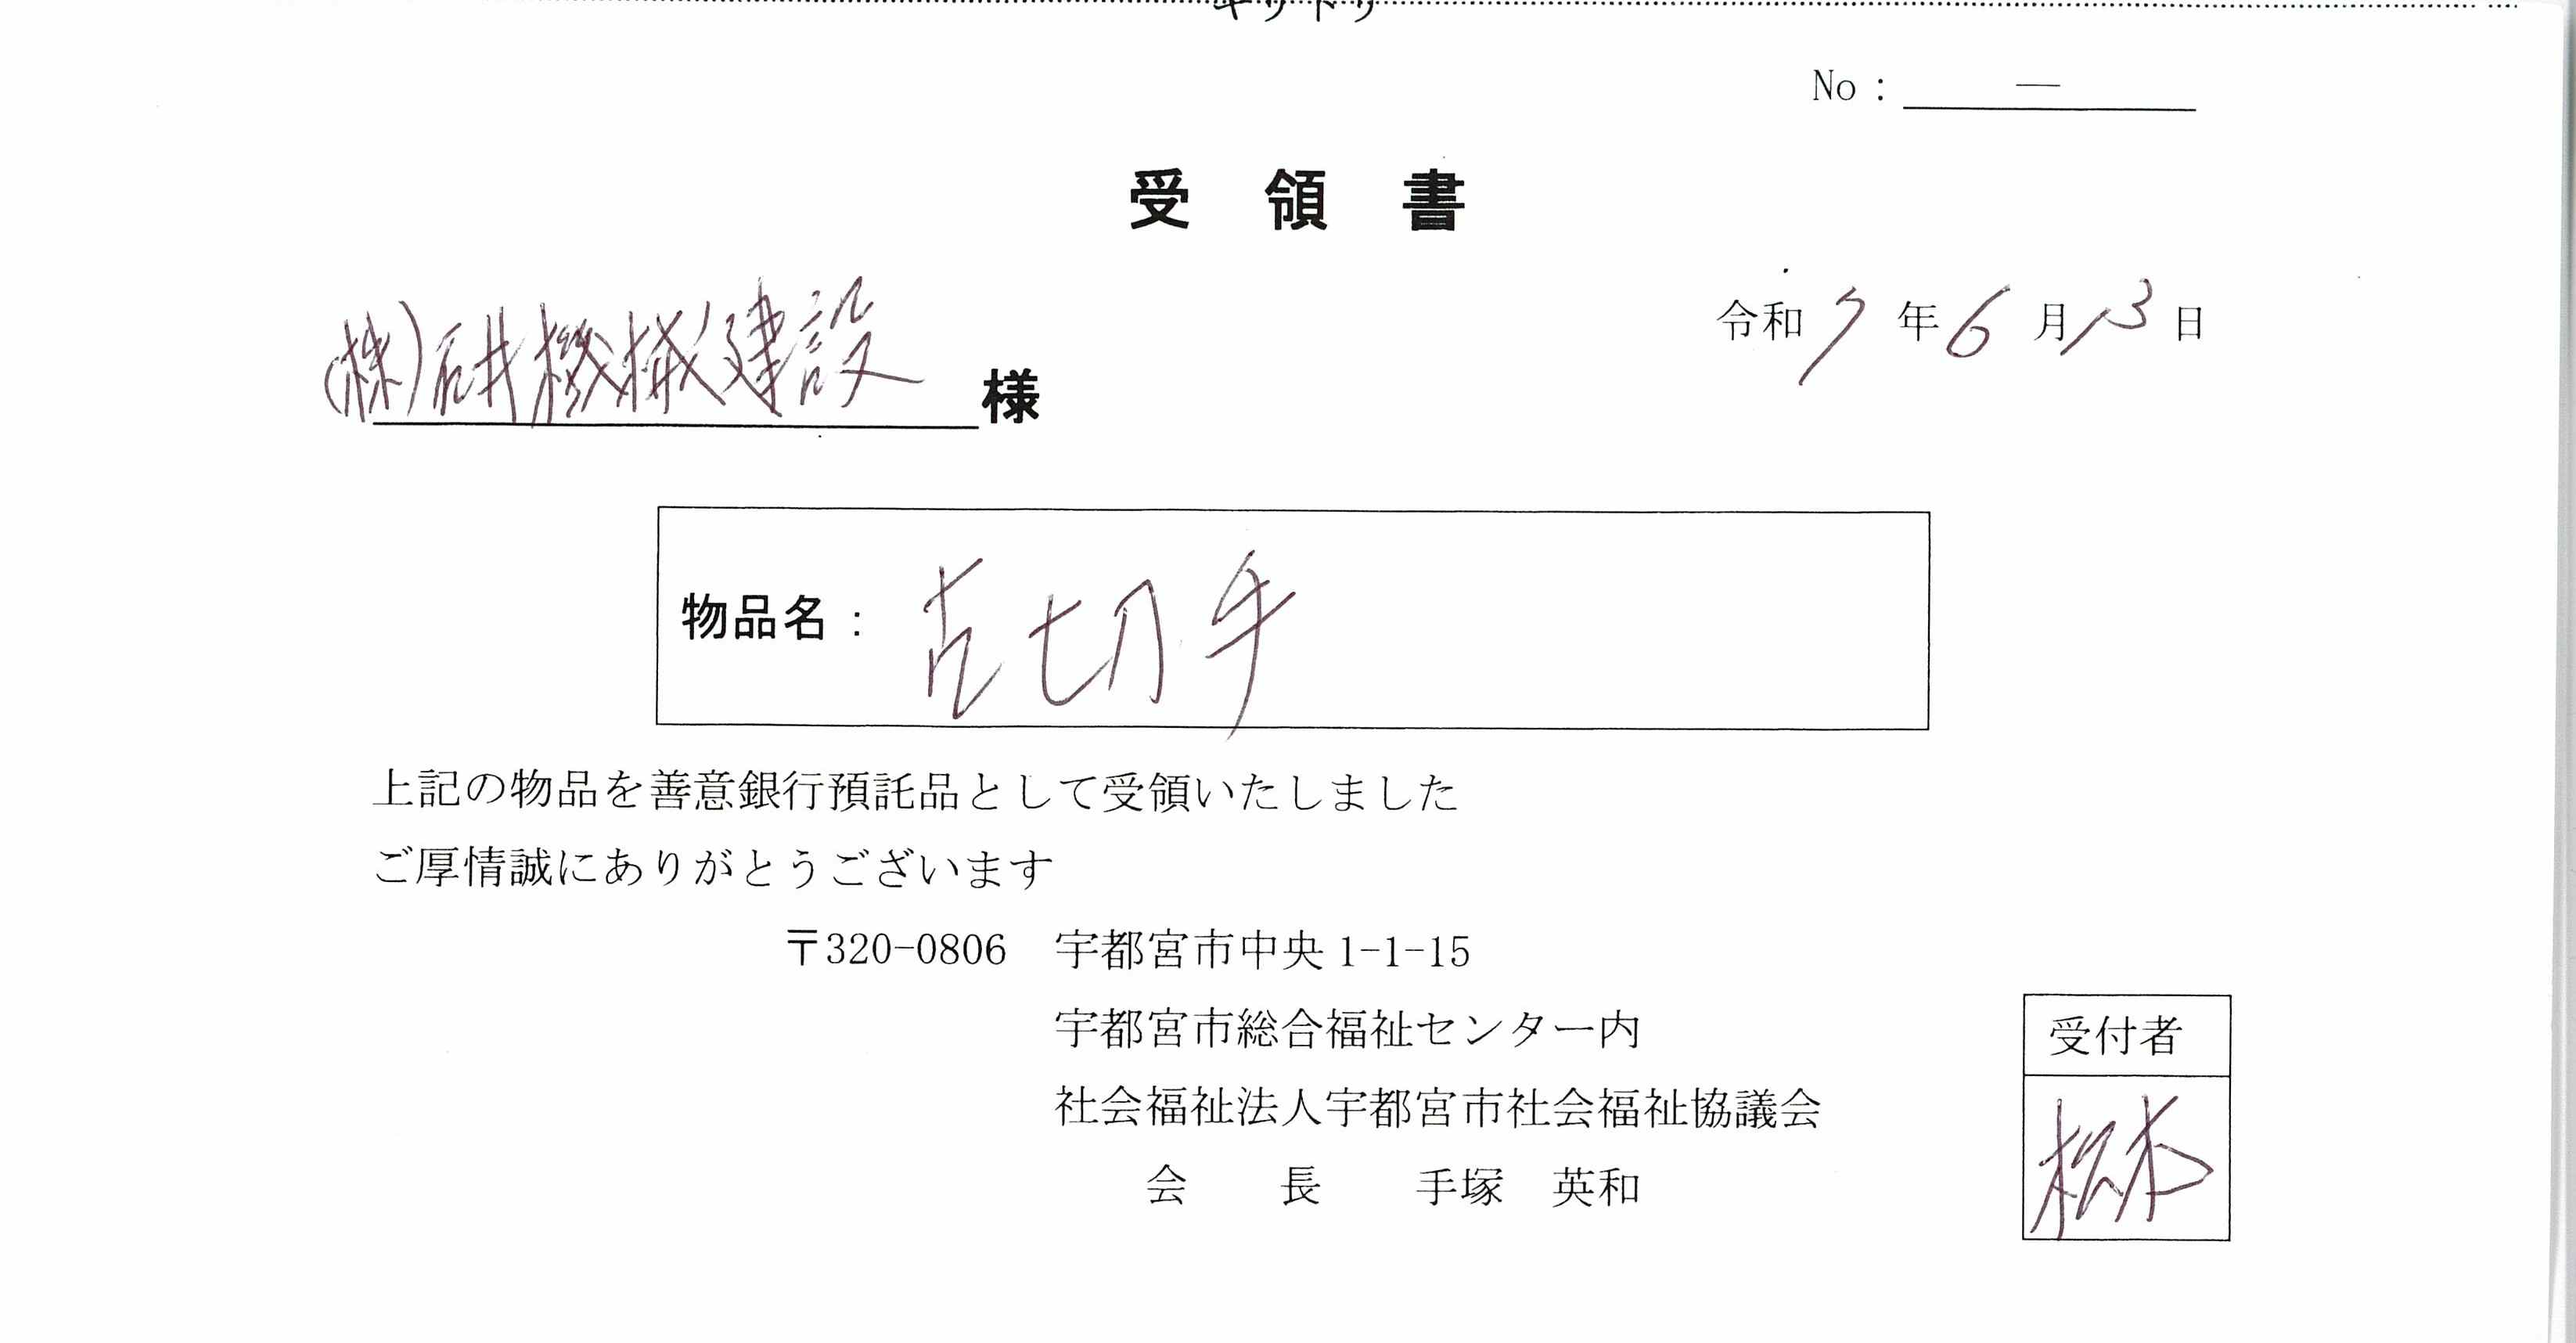 キリトリ
No：　―
受 領 書
令和 7 年 6 月 13 日
(株)石井機械建設 様
物品名： 古切手
上記の物品を善意銀行預託品として受領いたしました
ご厚情誠にありがとうございます
〒320-0806　宇都宮市中央 1-1-15
宇都宮市総合福祉センター内
社会福祉法人宇都宮市社会福祉協議会
会　　長　　手塚　英和
受付者
松本